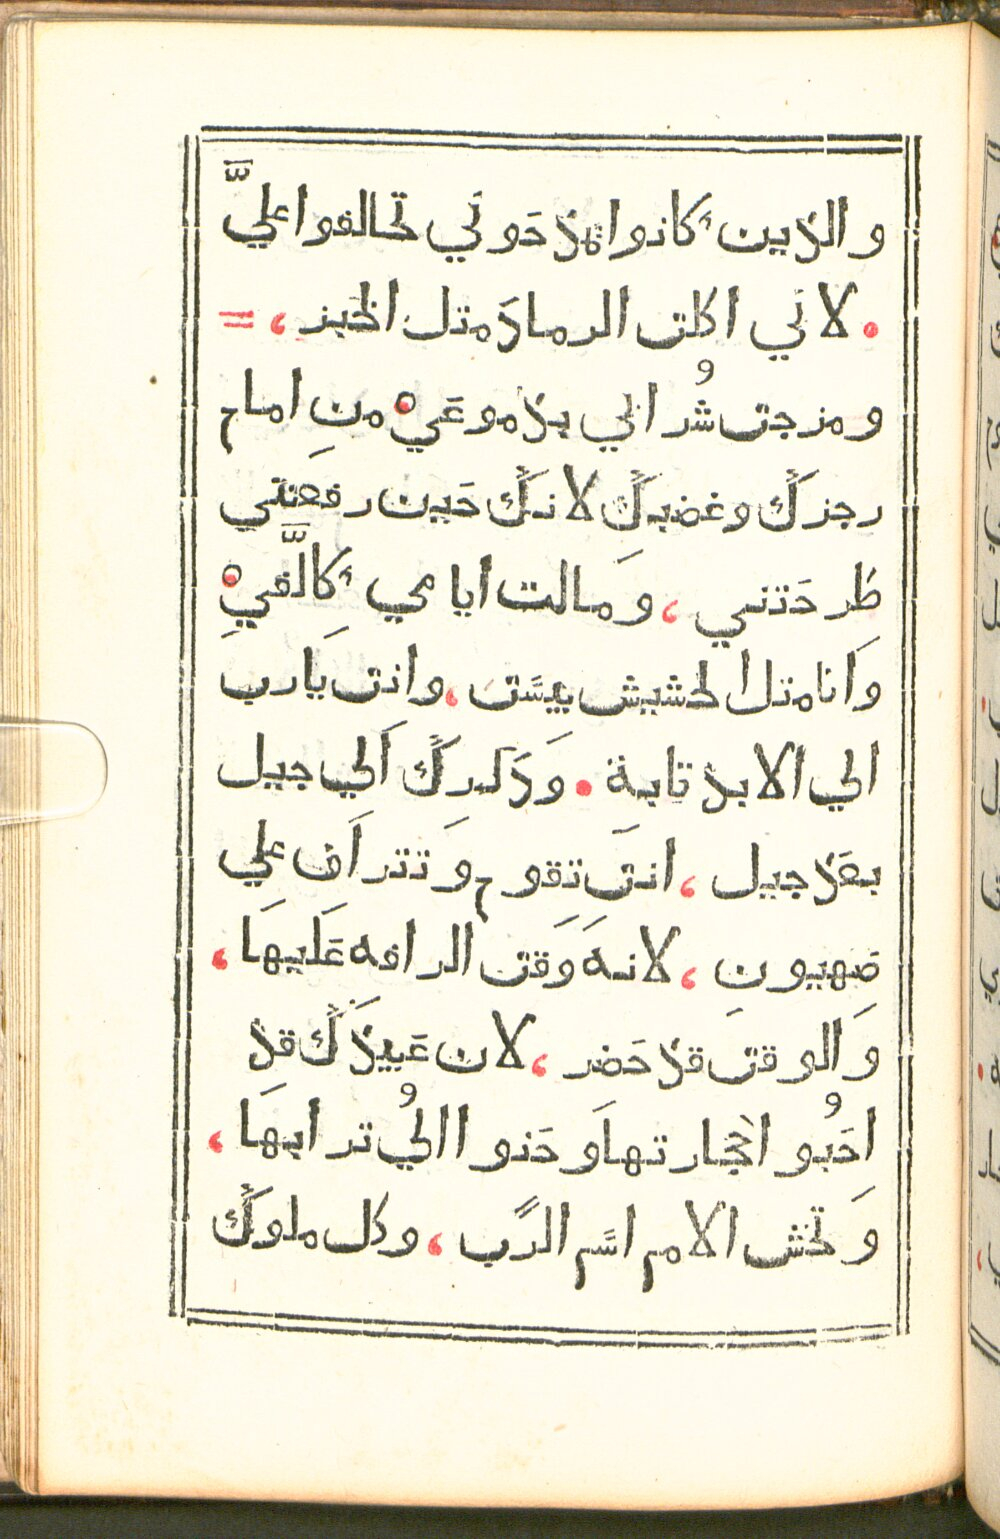 والدين كانوا يمدحوني تحالفوا عليَّ
• لاني اكلت الرماد متل الخبز ، =
ومزجت شُرابي بدموعي من امام
رجزك وغضبك لانك حين رفعتني
طرحتني ، ومالت ايامي كالفي
وانا متل الحشيش يبست ، وانت يارب
الي الابد تابتة • ودكرك الي جيل
بعد جيل ، انت تقوم وتتراف علي
صهيون ، لانه وقت الرافه عليها ،
والوقت قد حضر ، لان عبيدك قد
احبُو احجارتها وحنوا اليُ ترابها ،
وتخش الامم اسم الرب ، وكل ملوك